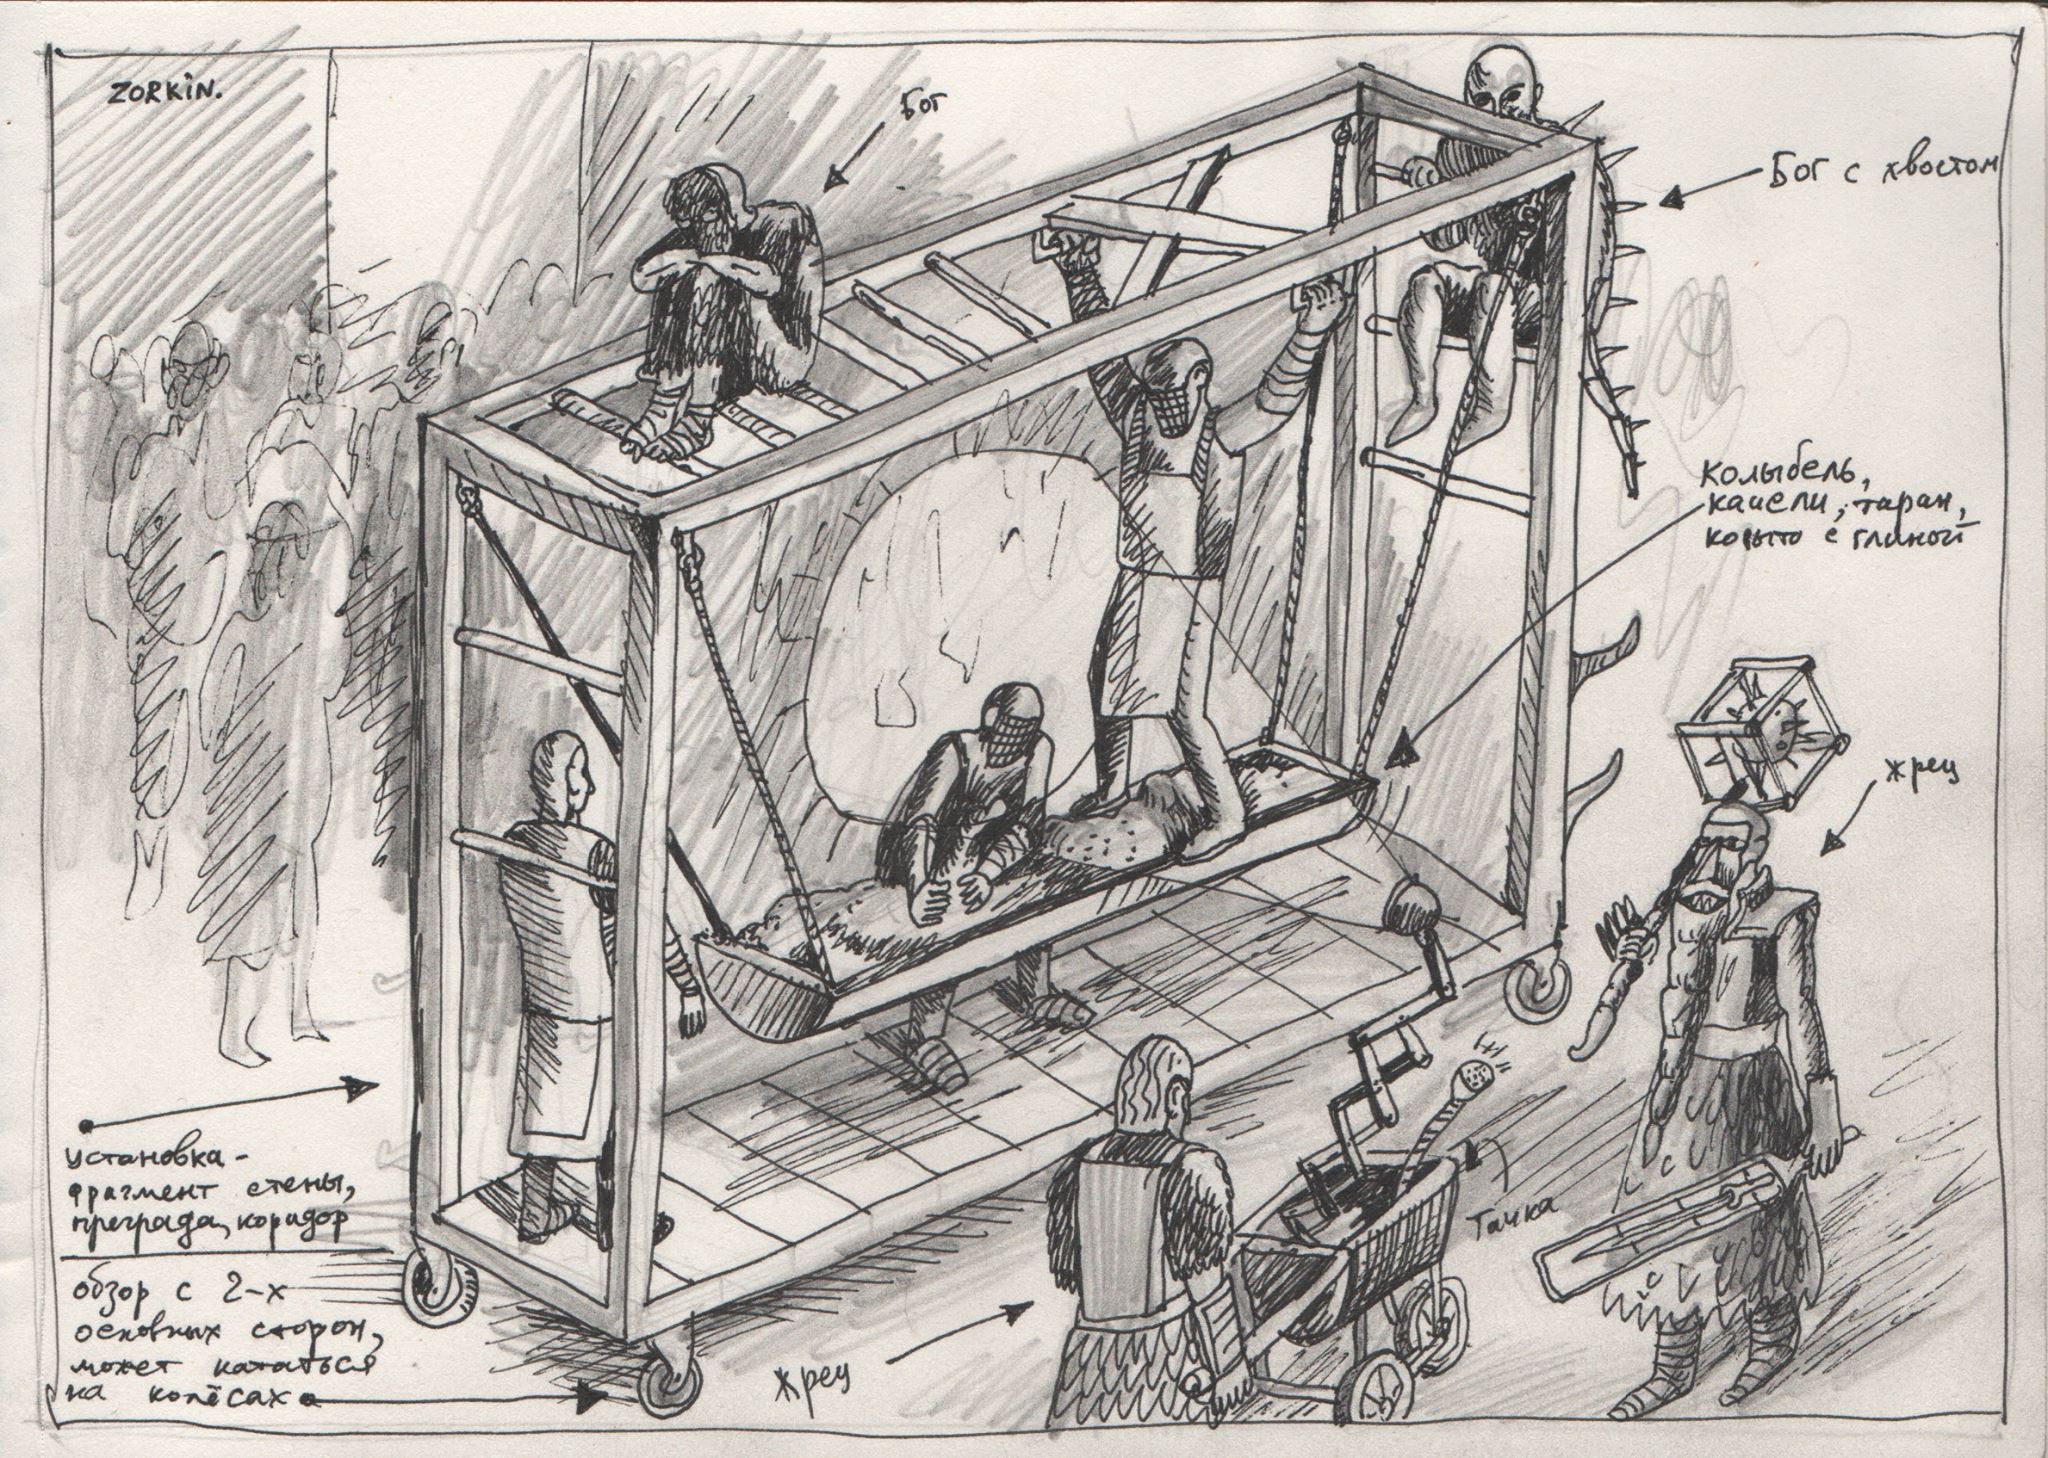 ZORKIN.
Бог
Бог с хвостом
колыбель,
качели, таран,
корыто с глиной
жрец
установка -
фрагмент стены,
преграда, коридор
обзор с 2-х
основных сторон,
может кататься
на колёсах
жрец
Тачка